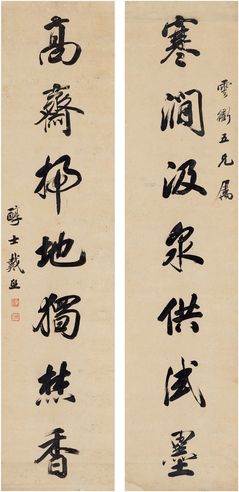 雲衢五兄属
寒澗汲泉供試墨
高齋掃地獨焚香
醇士戴熙